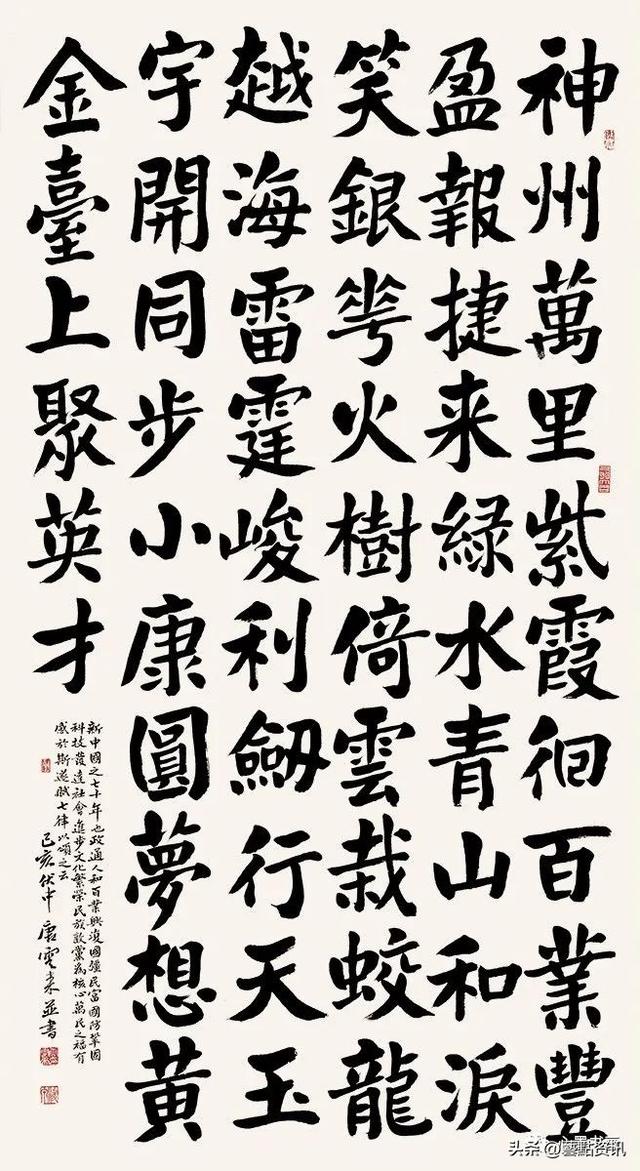 神州萬里紫霞徊百業豐
盈報捷来緑水青山和淚
笑銀花火樹倚雲栽蛟龍
越海雷霆峻利劒行天玉
宇開同步小康圓夢想黄
金臺上聚英才
新中國之七十年也政通人和百業興國疆民富國防鞏固
科技發達社會進步文化繁榮民族黨為核心萬民之福有
感於斯遂賦七律以頌之云
己亥伏中唐雲来並書
头条